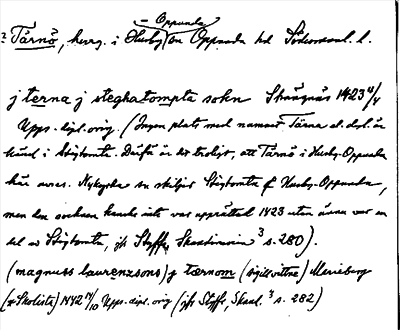 - Oppunda
? Tärnö, herrg. i Husby sn Oppunda hd Södermanl. l.
j terna j steghatompta sokn Strängnäs 1423 4/4
Upps. dipl. orig (Ingen plats med namnet Tärna el. dyl. är
känd i Stigtomta. Därför är det troligt, att Tärnö i Husby-Oppunda
här avses. Nyköpia sn skiljer Stigtomta f Husby-Oppunda,
men den socknen kanske inte var upprättad 1423 utan ännu var en
del av Stigtomta, jfr Styffe, Skandinavien 3 s. 280).
(magnus laurenzsons) j tærnom (sigillvittne) Marieborg
(= Skolista) 1442 14/10 Upps. dipl. orig (jfr Styffe, Skand. 3 s. 282)